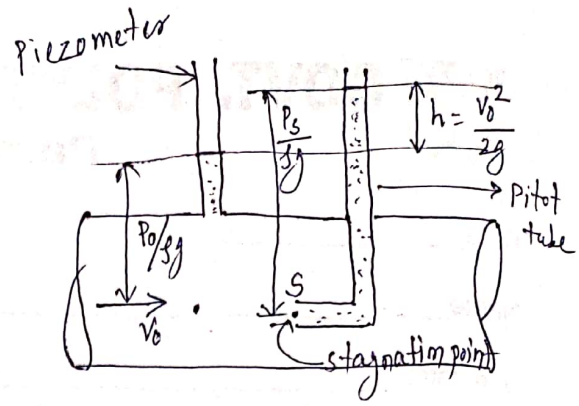 Piezometer
Ps/ρg
h = V₀²/2g
Pitot tube
P₀/ρg
S
V₀
stagnation point